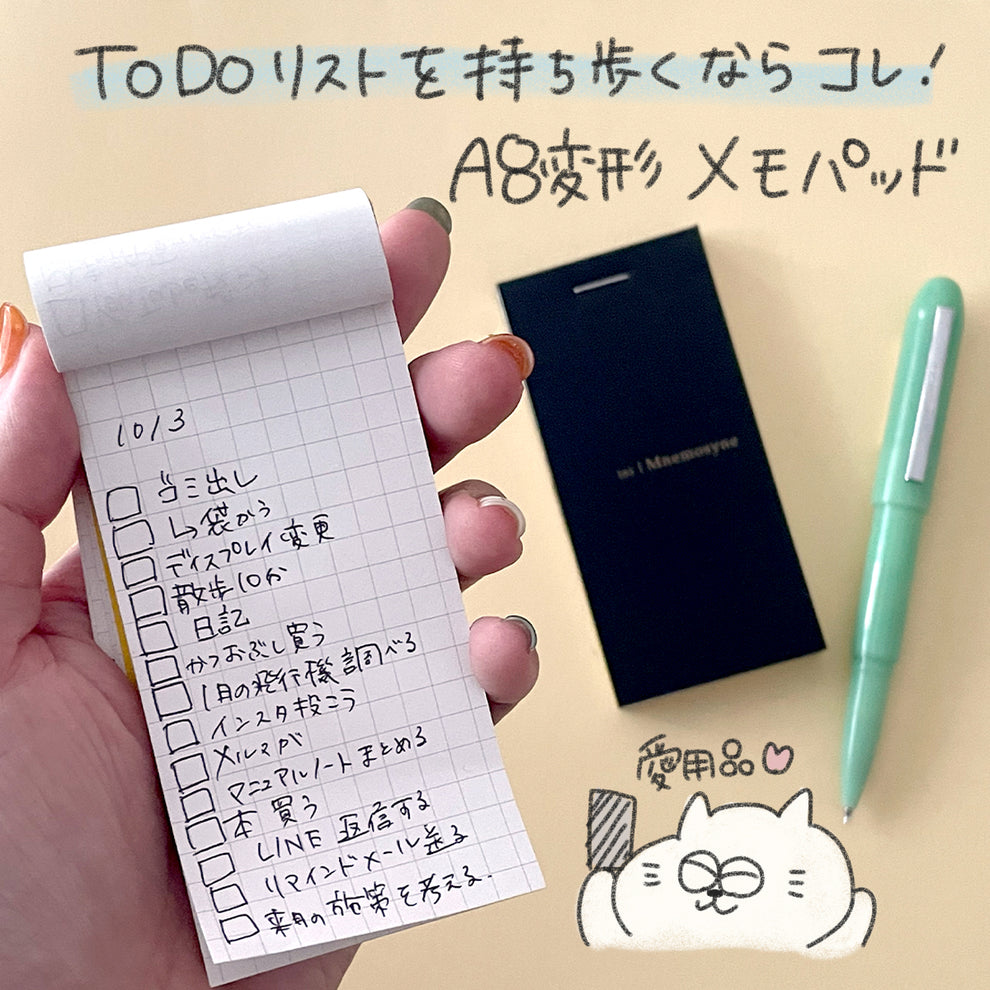 ToDoリストを持ち歩くならコレ!
A8変形 メモパッド
10/3
ゴミ出し
↳袋かう
ディスプレイ変更
散歩10分
日記
かつおぶし買う
1月の発行機調べる
インスタ投こう
メルマガ
マニュアルノートまとめる
本買う
LINE 返信する
リマインドメール送る
来月の施策を考える.
Mnemosyne
愛用品